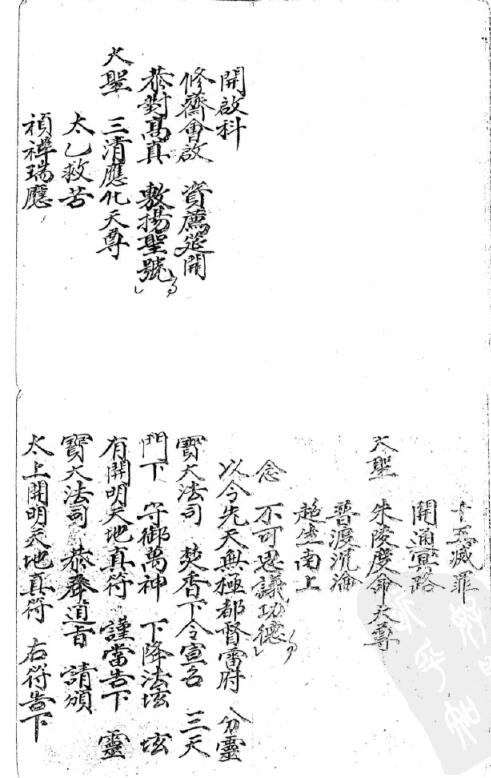 開啟科
修齋會啟 資薦筵開
恭對高真 敷揚聖號
大聖 三清應化天尊
太乙救苦
禎祥瑞應
十王滅罪
開通冥路
大聖 朱陵度命天尊
普渡沉淪
超生南上
念 不可思議功德
以今先天無極都督雷府 分靈
寶大法司 焚香下令宣召 三天
門下 守御萬神 下降法坛 坛
有開明天地真符 謹當告下 靈
寶大法司 恭奉道旨 請頒
太上開明天地真符 右符告下